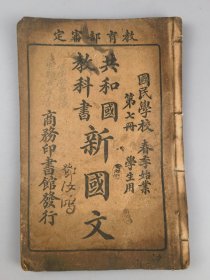 教育部審定
國民學校 春季始業
第七冊 學生用
共和國
教科書
新國文
商務印書館發行